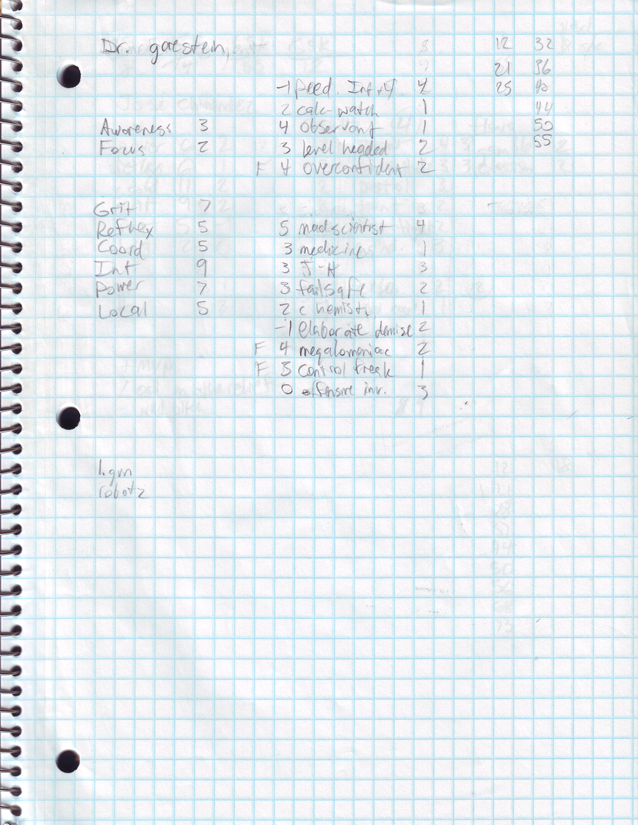 Dr. gorestein,
12 32
21 36
-1 pred. Int +4 4 25 40
2 calc-watch 1 44
Awareness 3 4 observant 1 50
Focus 2 3 level headed 2 55
F 4 overconfident 2
Grit 7
Reflex 5 5 mad scientist 4
Coord 5 3 medicine 1
Int 9 3 J-H 3
Power 7 3 failsafe 2
Local 5 2 chemistry 1
-1 elaborate demise 2
F 4 megalomaniac 2
F 3 control freak 1
0 offensive inv. 3
l.gun
robotz